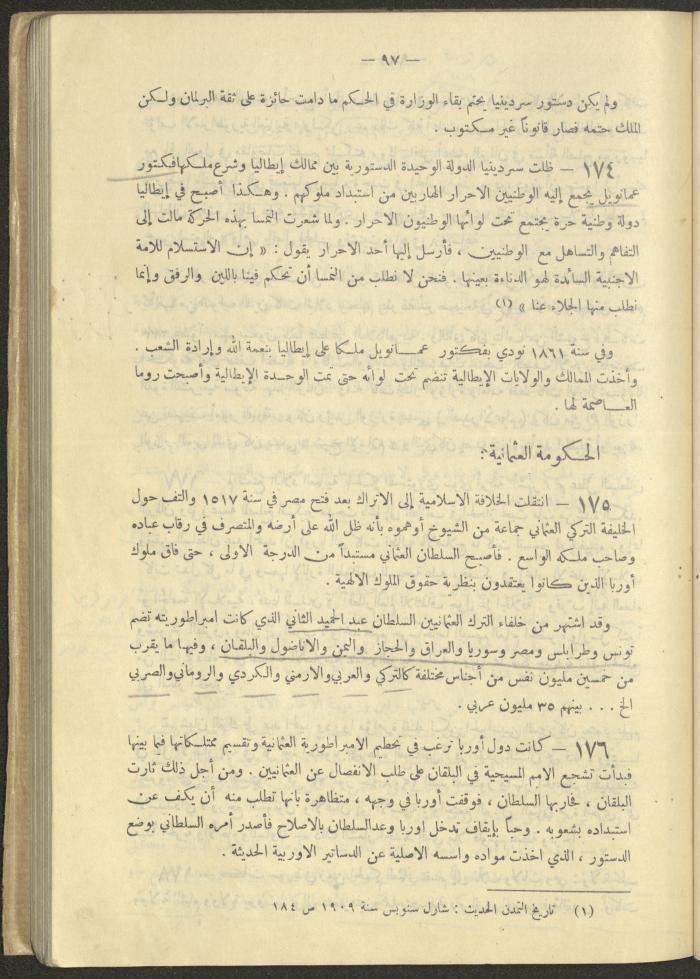 — ٩٧ —
ولم يكن دستور سردينيا يحتم بقاء الوزارة في الحكم ما دامت حائزة على ثقة البرلمان ولكن
الملك حتمه فصار قانوناً غير مكتوب .
١٧٤ — ظلت سردينيا الدولة الوحيدة الدستورية بين ممالك إيطاليا وشرع ملكها فيكتور
عمانويل يجمع إليه الوطنيين الاحرار الهاربين من استبداد ملوكهم . وهكذا أصبح في إيطاليا
دولة وطنية حرة يجتمع تحت لوائها الوطنيون الاحرار . ولما شعرت النمسا بهذه الحركة مالت إلى
التفاهم والتساهل مع الوطنيين ، فأرسل إليها أحد الاحرار يقول : « إن الاستسلام للامة
الاجنبية السائدة لهو الدناءة بعينها . فنحن لا نطلب من النمسا أن تحكم فينا باللين والرفق وإنما
نطلب منها الجلاء عنا » (١)
وفي سنة ١٨٦١ نودي بفكتور عمانويل ملكا على إيطاليا بنعمة الله وإرادة الشعب .
وأخذت الممالك والولايات الإيطالية تنضم تحت لوائه حتى تمت الوحدة الإيطالية وأصبحت روما
العاصمة لها .
الحكومة العثمانية :
١٧٥ — انتقلت الخلافة الاسلامية إلى الاتراك بعد فتح مصر في سنة ١٥١٧ والتف حول
الخليفة التركي العثماني جماعة من الشيوخ أوهموه بأنه ظل الله على أرضه والمتصرف في رقاب عباده
وصاحب ملكه الواسع . فأصبح السلطان العثماني مستبداً من الدرجة الاولى ، حتى فاق ملوك
أوربا الذين كانوا يعتقدون بنظرية حقوق الملوك الالهية .
وقد اشتهر من خلفاء الترك العثمانيين السلطان عبد الحميد الثاني الذي كانت امبراطوريته تضم
تونس وطرابلس ومصر وسوريا والعراق والحجاز واليمن والاناضول والبلقان ، وفيها ما يقرب
من خمسين مليون نفس من أجناس مختلفة كالتركي والعربي والارمني والكردي والروماني والصربي
الخ . . . بينهم ٣٥ مليون عربي .
١٧٦ — كانت دول أوربا ترغب في تحطيم الامبراطورية العثمانية وتقسيم ممتلكاتها فيما بينها
فبدأت تشجع الامم المسيحية في البلقان على طلب الانفصال عن العثمانيين . ومن أجل ذلك ثارت
البلقان ، فحاربها السلطان ، فوقفت أوربا في وجهه ، متظاهرة بانها تطلب منه أن يكف عن
استبداده بشعوبه . وحباً بإيقاف تدخل اوربا وعد السلطان بالاصلاح فأصدر أمره السلطاني بوضع
الدستور ، الذي اخذت مواده واسسه الاصلية عن الدساتير الاوربية الحديثة .
(١) تاريخ التمدن الحديث : شارل سنوبس سنة ١٩٠٩ ص ١٨٤